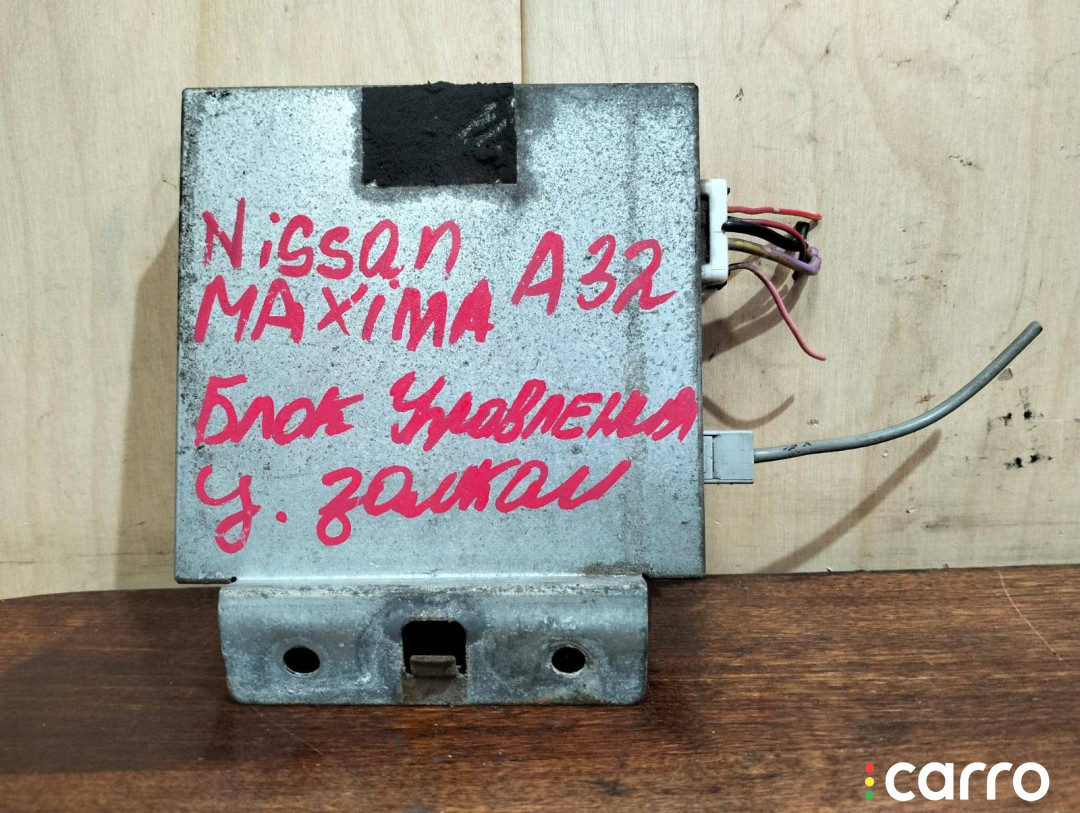 Nissan
MAXIMA A32
Блок Управления
ц. замками
carro